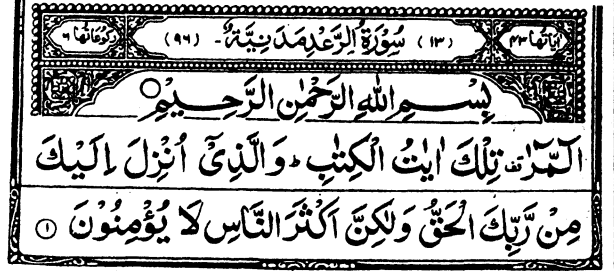 اٰيَاتُهَا ٤٣ (١٣) سُوْرَةُ الرَّعْدِ مَدَنِيَّةٌ - (٩٦) رُكُوْعَاتُهَا ٦
بِسْمِ اللّٰهِ الرَّحْمٰنِ الرَّحِيْمِ
الٓمّٓرٰ تِلْكَ اٰيٰتُ الْكِتٰبِ ط وَالَّذِىْٓ اُنْزِلَ اِلَيْكَ
مِنْ رَّبِّكَ الْحَقُّ وَلٰكِنَّ اَكْثَرَ النَّاسِ لَا يُؤْمِنُوْنَ ١